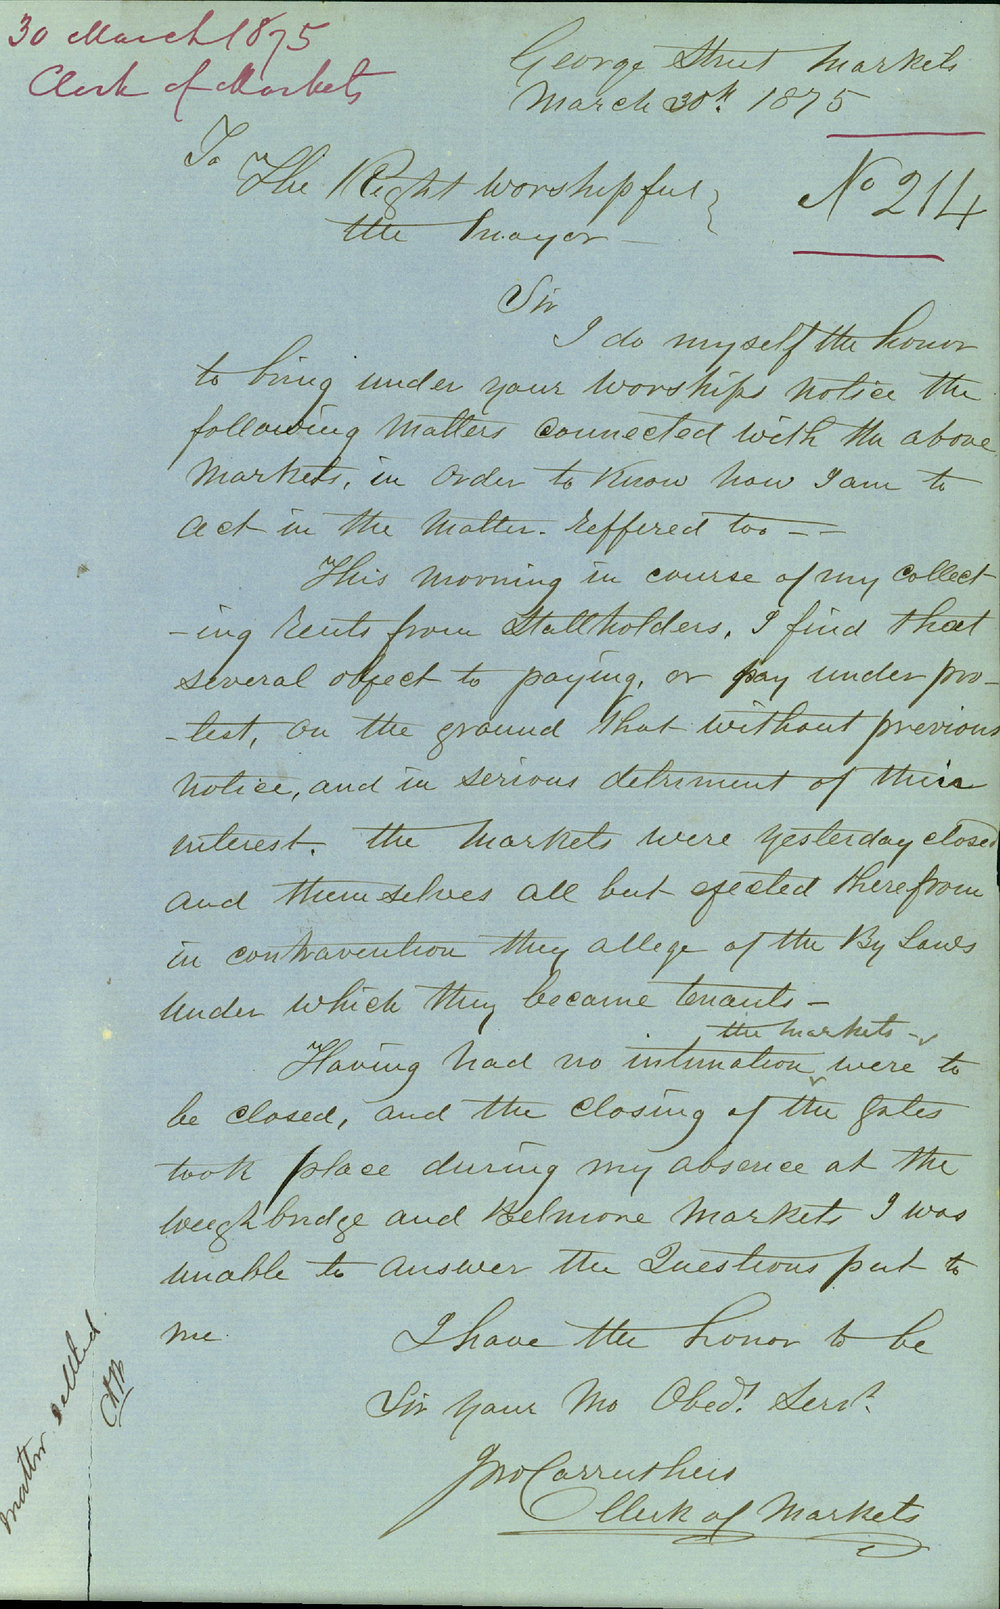 30 March 1875
Clerk of Markets
George Street Markets
March 30th 1875
No 214
To
The Right Worshipful
the Mayor
Sir
I do myself the honor
to bring under your Worships notice the
following matters connected with the above
Markets, in order to know how I am to
act in the matter. reffered too - -
This morning in course of my collect
-ing rents from Stallholders, I find that
several object to paying, or pay under pro-
-test, on the ground that without previous
notice, and in serious detriment of their
interest. the Markets were yesterday closed
and themselves all but ejected therefrom
in contravention they allege of the By Laws
under which they became tenants -
Having had no intimation the markets were to
be closed, and the closing of the gates
took place during my absence at the
weighbridge and Belmore Markets I was
unable to answer the Questions put to
me.
I have the honor to be
Sir Your Mo Obedt. Servt.
Jno Carruthers
Clerk of Markets
Matter settled.